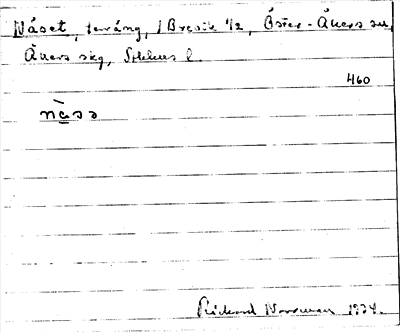 Näset, terräng, /Brevik 1/2, Öster-Åkers sn,
Åkers skg, Sthlms l.
460
näss
Rickard Norrman 1934.